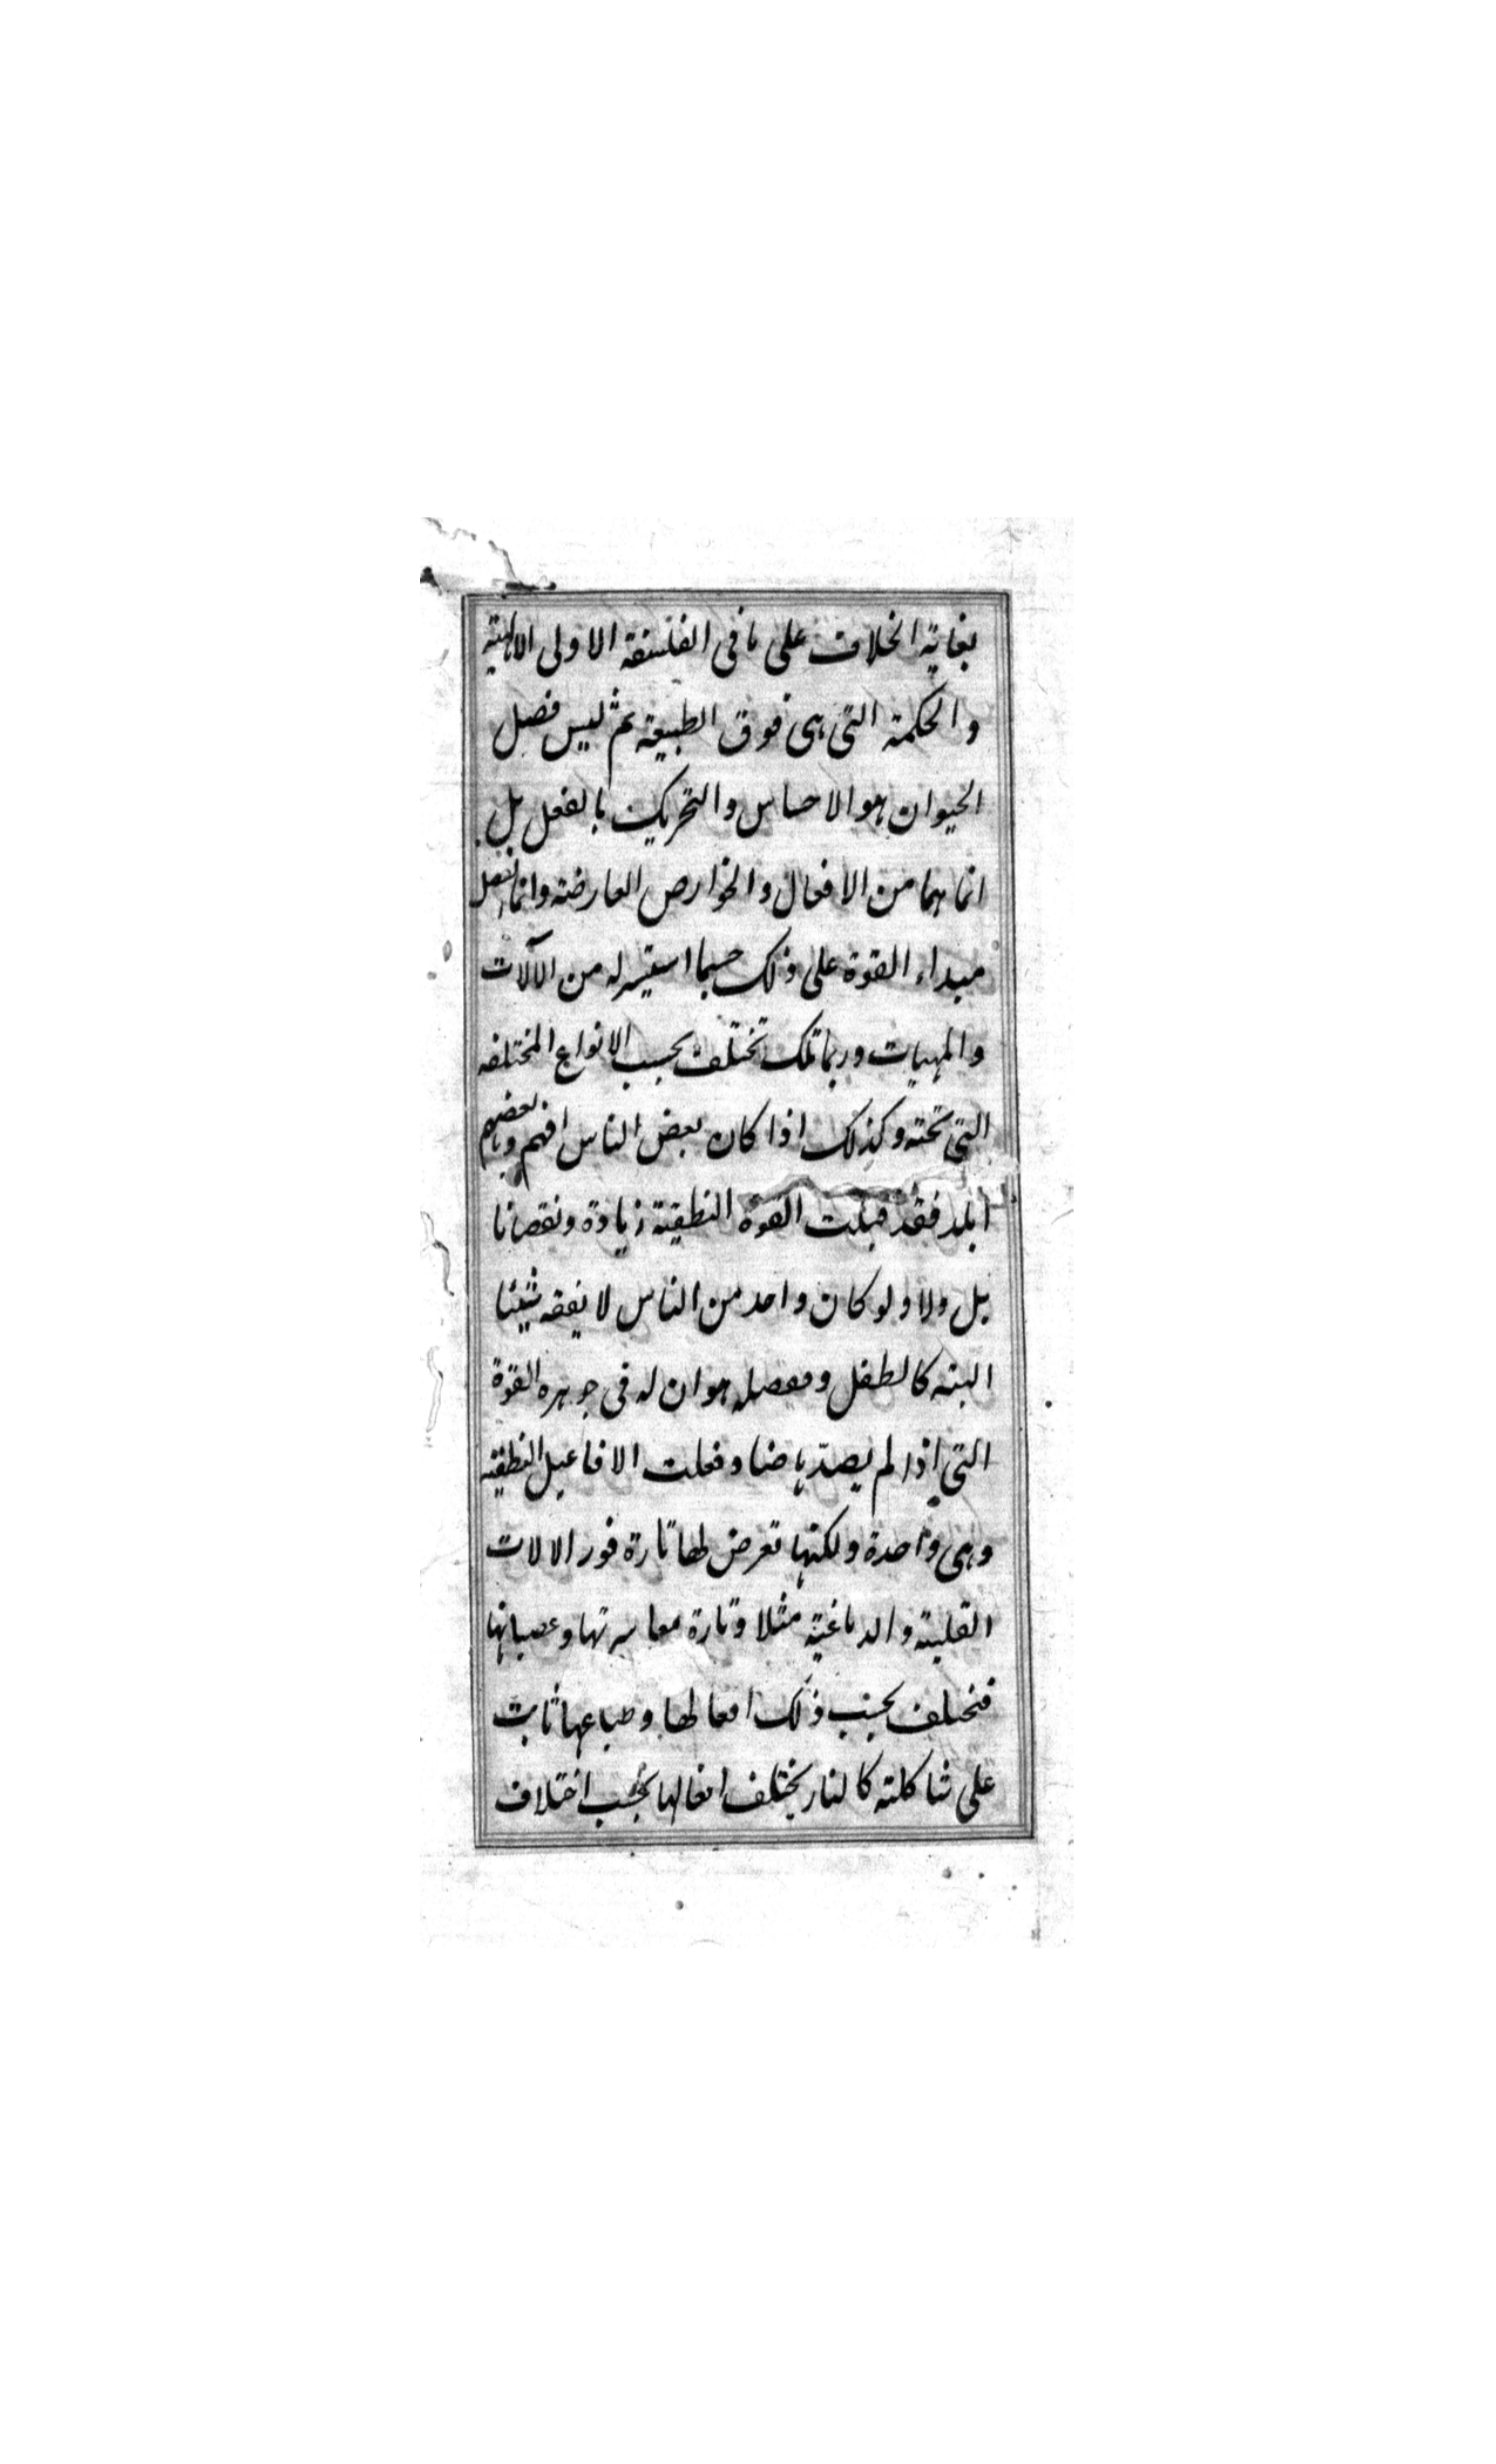 بغاية الخلاف على ما فى الفلسفة الاولى الالهية
و الحكمة التى هى فوق الطبيعة ثم ليس فصل
الحيوان هو الاحساس والتحريك بالفعل بل
انما هما من الافعال والخوارص العارضة وانما الفصل
مبداء القوة على ذلك حسبما استيسر له من الآلات
والمهيات وربما تلك تختلف بحسب الانواع المختلفه
التى تحته وكذلك اذا كان بعض الناس افهم وبعضهم
ابلد فقد قبلت القوة النطقية زيادة ونقصانا
بل ولا ولو كان واحد من الناس لا يفقه شيئا
البته كالطفل وفصله هو ان له فى جوهره القوة
التى اذا لم يصدها ضاد فعلت الافاعيل النطقيه
وهى واحدة ولكنها تعرض لها تارة فور الالات
القلبية والدماغية مثلا وتارة معاسرتها وعصيانها
فتختلف بحسب ذلك افعالها وطباعها ثابت
على شاكلته كالنار يختلف افعالها بحسب اختلاف